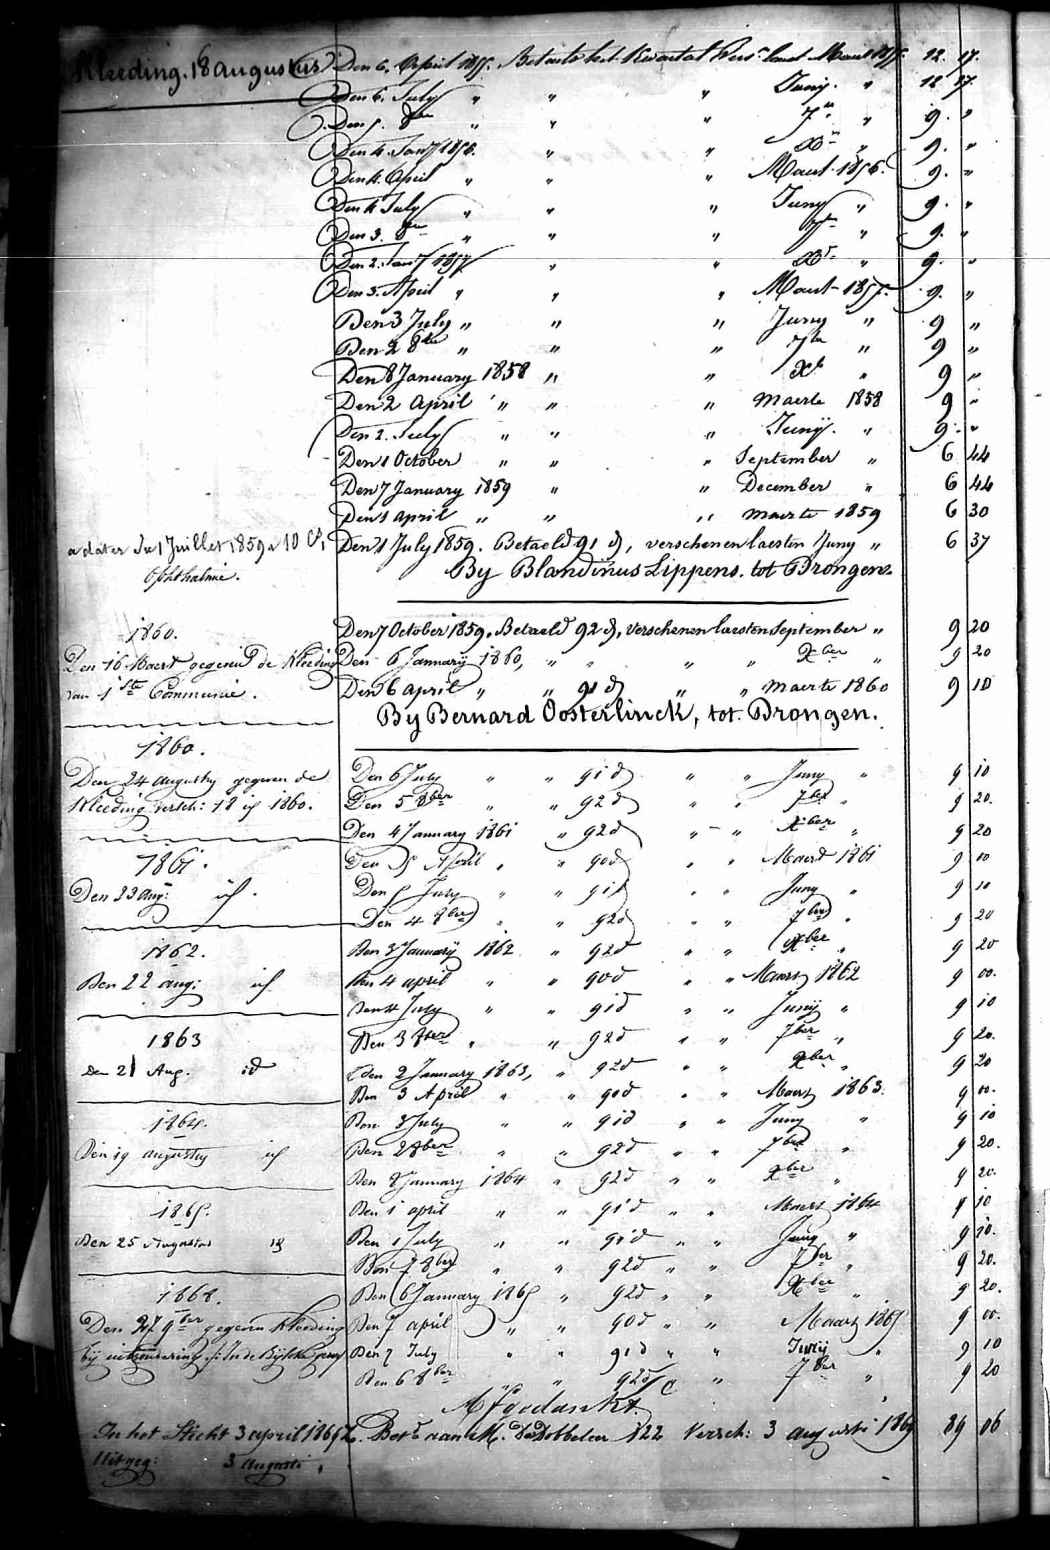 Kleeding. 18 augustus Den 6. April 1855. Betaald het Kwartaal Maert 1855. 12. 17.
Den 6. July " " " Juny. " 12 17.
Den 5. 8ber " " " 7ber " 9. "
Den 4. Jany 1856. " " Xber " 9. "
Den 4. April " " " Maert 1856. 9. "
Den 4 July " " " Juny " 9. "
Den 3. 8ber " " " 7ber " 9. "
Den 2. Jany 1857 " " Xbr " 9. "
Den 3. April " " " Maert 1857. 9. "
Den 3 July " " " Juny " 9 "
Den 2 8ber " " " 7ber " 9 "
Den 8 January 1858 " " Xbr " 9 "
Den 2 April " " " Maerte 1858 9 "
Den 2. July " " " Junÿ. " 9. "
Den 1 October " " " September " 6 44
Den 7 January 1859 " " December " 6 44
Den 1 april " " " maerte 1859 6 30
a dater du 1 Juillet 1859 a 10 Cs, Den 1 July 1859. Betaeld 91 d, verschenen laesten Juny " 6 37
Ophthalmie. By Blandinus Lippens. tot Drongen.
1860. Den 7 October 1859, Betaeld 92 d, verschenen laesten September " 9 20
Den 16 Maert gegeven de Kleeding Den 6 Januarÿ 1860, " " " " Xber " 9 20
van 1ste Communie. Den 6 april " " 91 d " " maerte 1860 9 10
By Bernard Oosterlinck, tot. Drongen.
1860.
Den 24 augusty gegeven de Den 6 July " " 91 d " " Juny " 9 10
Kleeding versch: 18 id 1860. Den 5 8ber " " 92 d " " 7ber " 9 20.
Den 4 January 1861 " 92 d " " Xber " 9 20
1861. Den 5 April " " 90 d " " Maerd 1861 9 10
Den 23 aug: id. Den 5 July " " 91 d " " Juny " 9 10
Den 4 8ber " " 92 d " " 7ber " 9 20
1862. Den 3 Januarÿ 1862 " 92 d " " Xber " 9 20
Den 22 aug: id Den 4 april " " 90 d " " Maart 1862 9 00.
Den 4 July " " 91 d " " Junÿ " 9 10
1863 Den 3 8ber " " 92 d " " 7ber " 9 20.
Den 21 Aug. id Den 2 January 1863, " 92 d " " Xber " 9 20
Den 3 April " " 90 d " " Maart 1863. 9 00.
1864. Den 3 July " " 91 d " " Juny " 9 10
Den 19 augusty id Den 2 8ber " " 92 d " " 7ber " 9 20.
Den 8 January 1864 " 92 d " " Xber " 9 20.
1865. Den 1 april " " 91 d " " Maert 1864 9 10
Den 25 Augustus id Den 1 July " " 91 d " " Juny " 9 10.
Den 7 8ber " " 92 d " " 7ber " 9 20.
1868. Den 6 January 1865 " 92 d " " Xber " 9 20.
Den 27 9ber gegeven Kleeding Den 7 april " " 90 d " " Maart 1865 9 00.
bij uitzondering Den 7 July " " 91 d " " Junÿ " 9 10
Den 6 8ber " " 92 d " " 7ber " 9 20
Afgedankt
In het Sticht 3 april 1869 Bet. aan M. De Dobbeleer 122 Versch: 3 augusti 1869 89 06
Uitgeg: 3 Augusti.